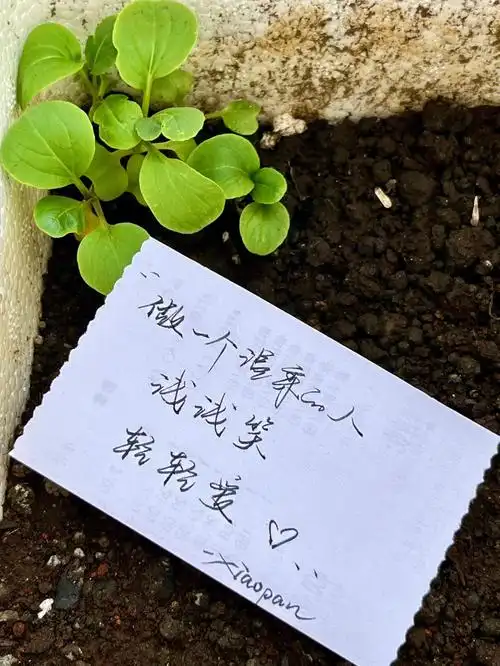 “做一个温柔的人
浅浅笑
轻轻爱 ♡ ”
-Xiaopan